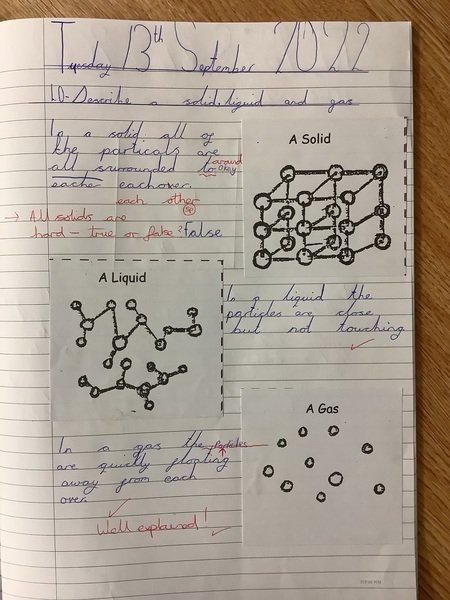 Tuesday 13th September 2022
LO- Describe a solid, liquid and gas
In a solid all of
the particals are
all surrounded to around
eacher eachover.
each other
sp
→ All solids are
hard - true or false? False
A Solid
A Liquid
In a liquid the
particles are close
but not touching
A Gas
In a gas the particles
are quickly floating
away from each
over.
Well explained!